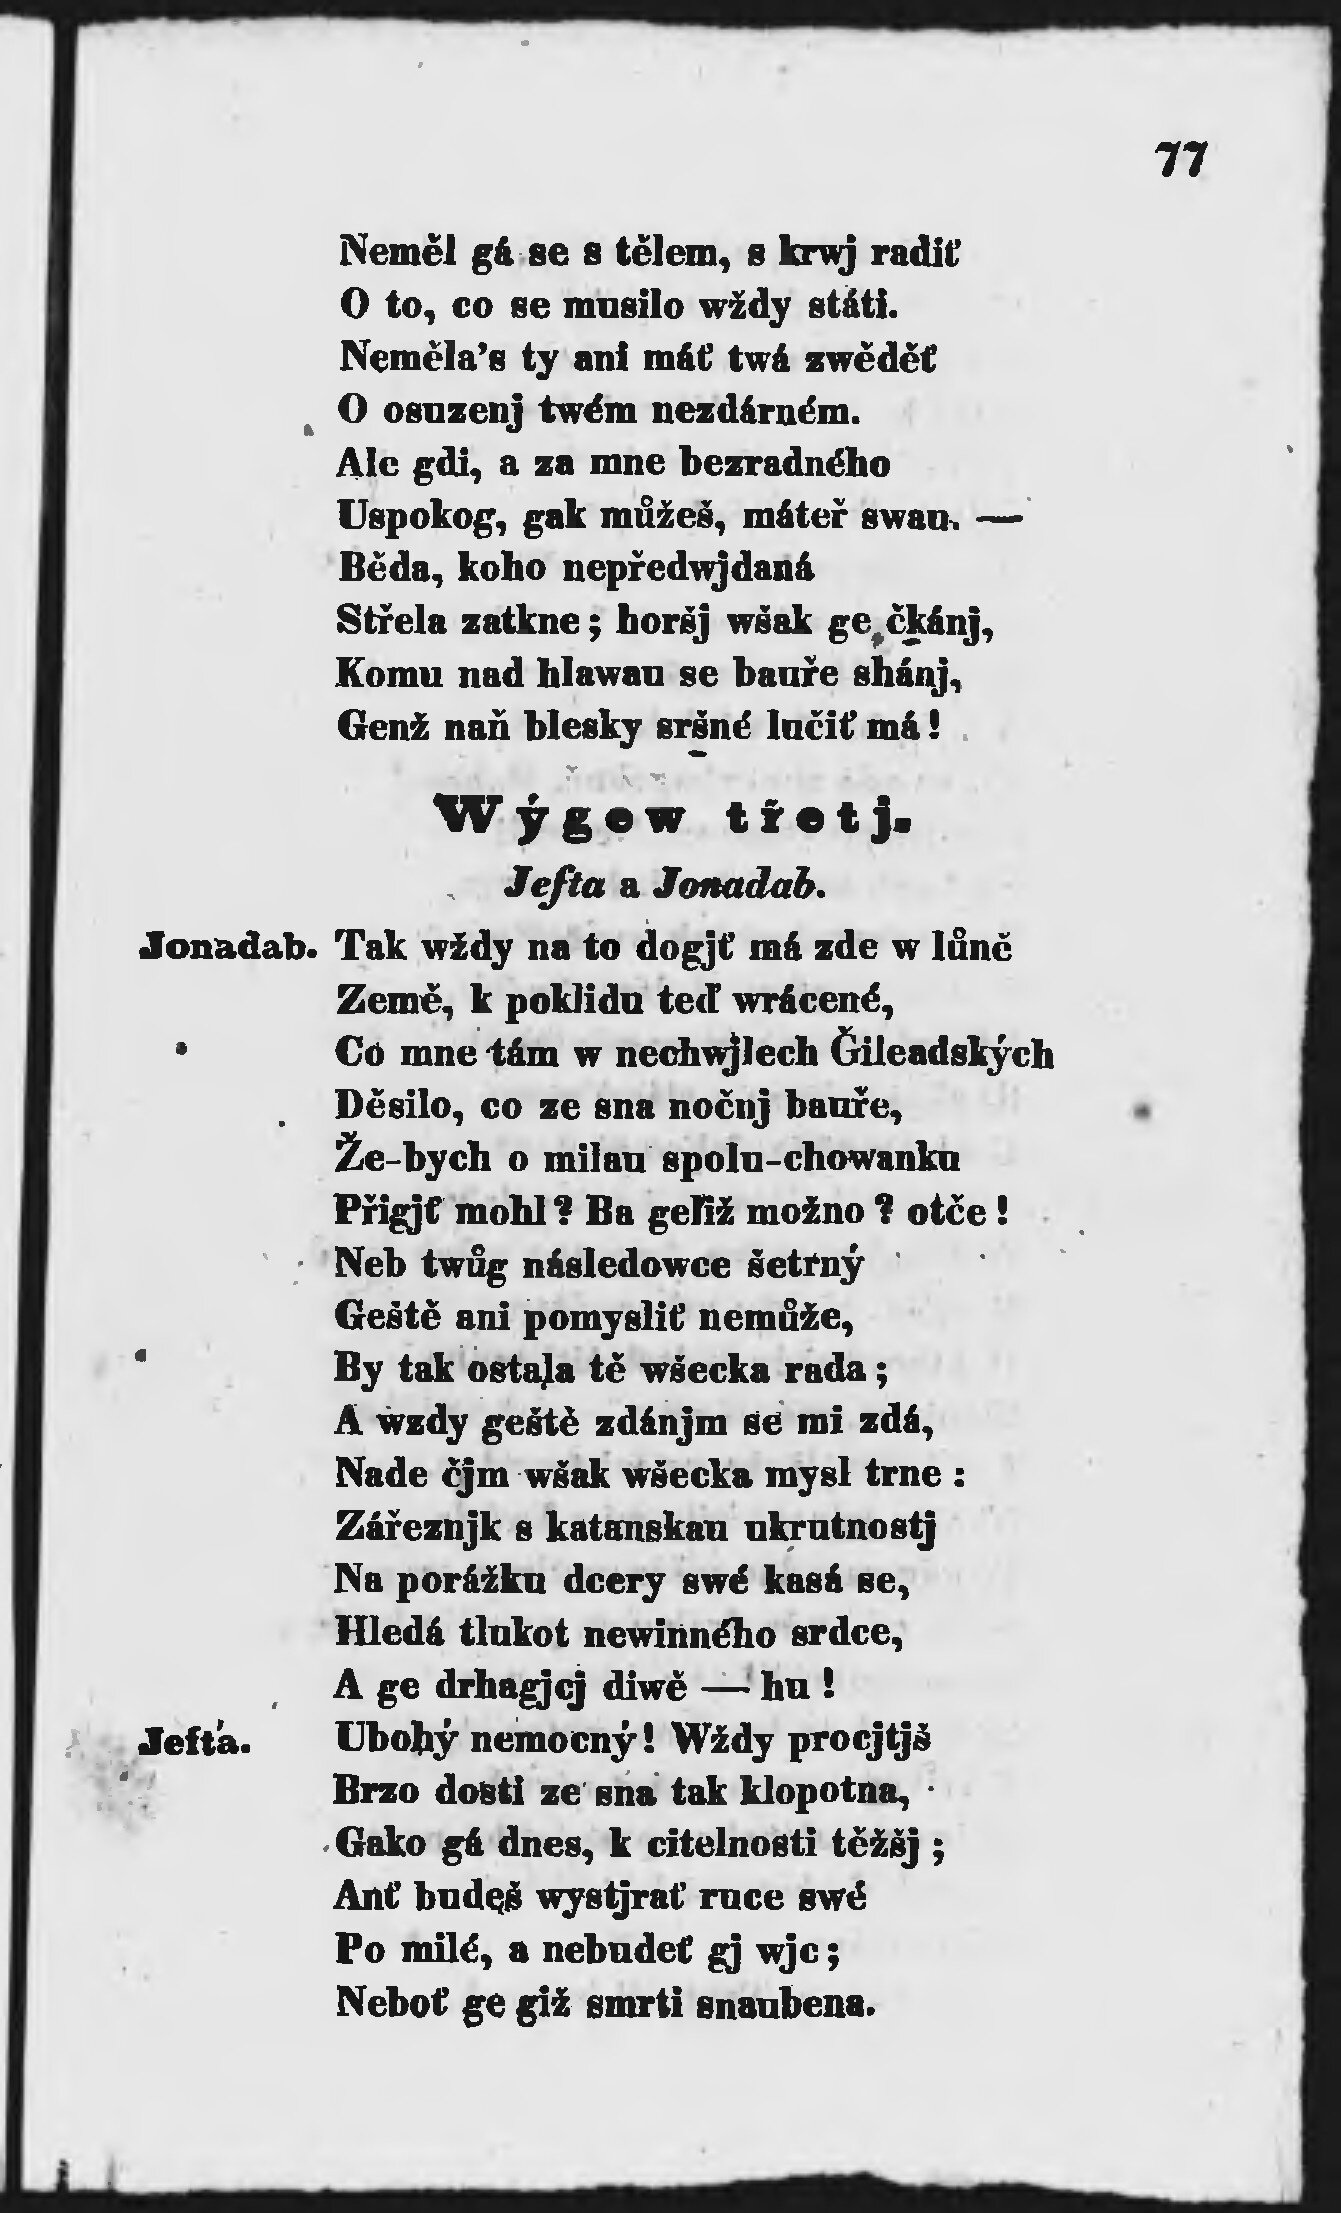 77
Neměl gá se s tělem, s krwj radiť
O to, co se musilo wždy státi.
Neměla's ty ani máť twá zwěděť
O osuzenj twém nezdárném.
Ale gdi, a za mne bezradného
Uspokog, gak můžeš, máteř swau. —
Běda, koho nepředwjdaná
Střela zatkne; horšj wšak ge čkánj,
Komu nad hlawau se bauře shánj,
Genž naň blesky sršné lučiť má!
Wýgew třetj.
Jefta a Jonadab.
Jonadab. Tak wždy na to dogjť má zde w lůně
Země, k poklidu teď wrácené,
Co mne tám w nechwjlech Ǧileadských
Děsilo, co ze sna nočnj bauře,
Že-bych o milau spolu-chowanku
Přigjť mohl? Ba geľiž možno? otče!
Neb twůg následowce šetrný
Geště ani pomysliť nemůže,
By tak ostala tě wšecka rada;
A wzdy geště zdánjm se mi zdá,
Nade čjm wšak wšecka mysl trne:
Zářeznjk s katanskau ukrutnostj
Na porážku dcery swé kasá se,
Hledá tlukot newinného srdce,
A ge drhagjcj diwě — hu!
Jefta. Ubohý nemocný! Wždy procjtjš
Brzo dosti ze sna tak klopotna,
Gako gá dnes, k citelnosti těžšj;
Anť budeš wystjrať ruce swé
Po milé, a nebudeť gj wjc;
Neboť ge giž smrti snaubena.